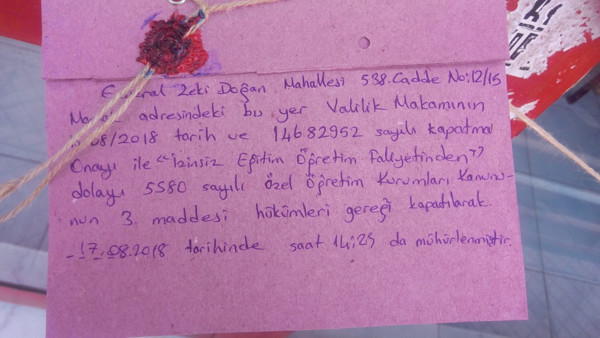 General Zeki Doğan Mahallesi 538.Cadde No:12/15
adresindeki bış yer Valilik Makamının
08/2018 tarih ve 14682952 sayılı kapatma
Onayı ile "İzinsiz Eğitim Öğretim Faliyetinden"
dolayı 5580 sayılı Özel Öğretim Kurumları Kanunu-
nun 3. maddesi hükümleri gereği kapatılarak.
-17.08.2018 tarihinde saat 14:25 da mühürlenmiştir.